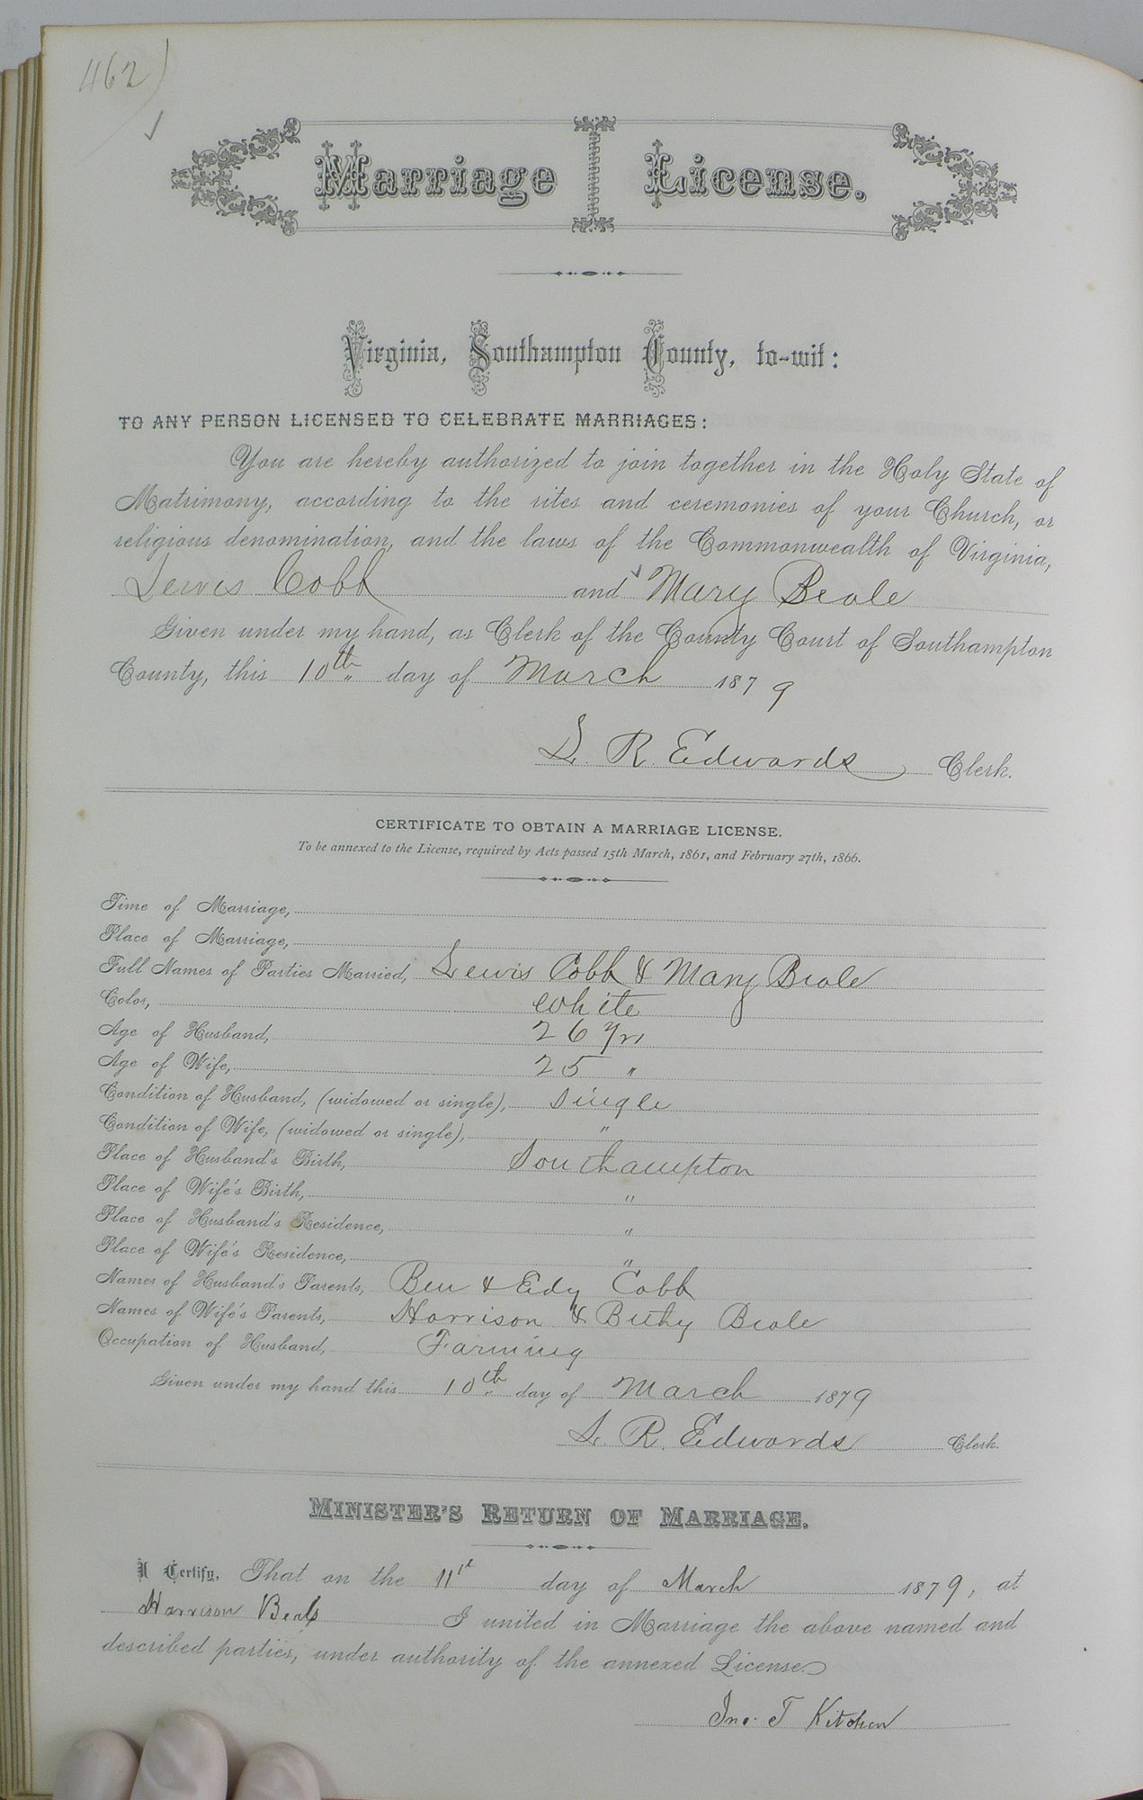 462)
Marriage License.
Virginia, Southampton County, to-wit:
TO ANY PERSON LICENSED TO CELEBRATE MARRIAGES:
You are hereby authorized to join together in the Holy State of
Matrimony, according to the rites and ceremonies of your Church, or
religious denomination, and the laws of the Commonwealth of Virginia,
Lewis Cobb and Mary Beale
Given under my hand, as Clerk of the County Court of Southampton
County, this 10th day of March 1879
L. R. Edwards Clerk.
CERTIFICATE TO OBTAIN A MARRIAGE LICENSE.
To be annexed to the License, required by Acts passed 15th March, 1861, and February 27th, 1866.
Time of Marriage,
Place of Marriage,
Full Names of Parties Married, Lewis Cobb & Mary Beale
Color, White
Age of Husband, 26 yrs
Age of Wife, 25 "
Condition of Husband, (widowed or single), Single
Condition of Wife, (widowed or single), "
Place of Husband's Birth, Southampton
Place of Wife's Birth, "
Place of Husband's Residence, "
Place of Wife's Residence, "
Names of Husband's Parents, Ben & Edy Cobb
Names of Wife's Parents, Harrison & Beale
Occupation of Husband, Farming
Given under my hand this 10th day of March 1879
L. R. Edwards Clerk.
MINISTER'S RETURN OF MARRIAGE.
I Certify, That on the 11th day of March 1879, at
Harrison Beals I united in Marriage the above named and
described parties, under authority of the annexed License.
Jno. T Kitchen